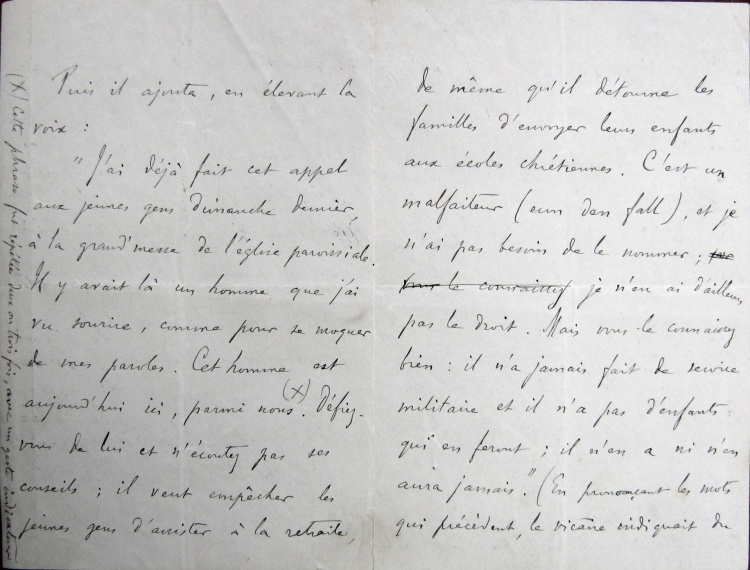 Puis il ajouta, en élevant la
voix :
"J'ai déjà fait cet appel
aux jeunes gens dimanche dernier,
à la grand'messe de l'église paroissiale.
Il y avait là un homme que j'ai
vu sourire, comme pour se moquer
de mes paroles. Cet homme est
aujourd'hui ici, parmi nous (X). Défiez-
vous de lui et n'écoutez pas ses
conseils ; il veut empêcher les
jeunes gens d'assister à la retraite,
(X) Cette phrase fut répétée deux ou trois fois, avec un geste indicateur
de même qu'il détourne les
familles d'envoyer leurs enfants
aux écoles chrétiennes. C'est un
malfaiteur (eun den fall), et je
n'ai pas besoin de le nommer ; que
vous le connaissez je n'en ai d'ailleurs
pas le droit. Mais vous le connaissez
bien : il n'a jamais fait de service
militaire et il n'a pas d'enfants
qui en feront ; il n'en a ni n'en
aura jamais." (En prononçant les mots
qui précèdent, le vicaire indiquait du